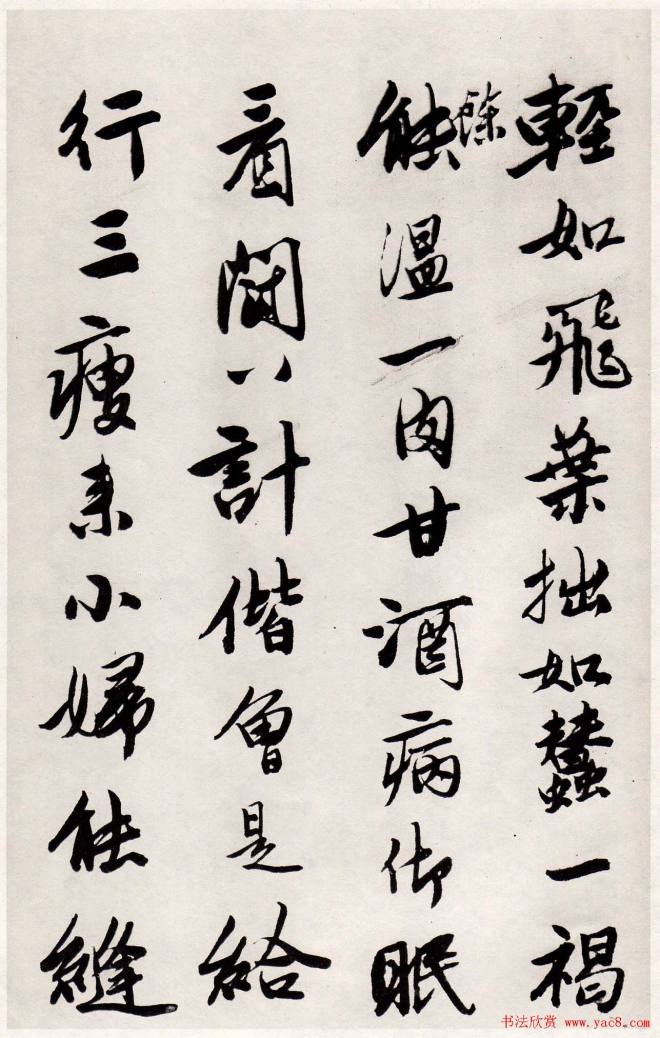 輕如飛葉拙如蠶一褐
能餘溫一肉甘酒病御眠
看鬪八計偕會是給
行三瘦來小婦能縫
书法欣赏 www.yac8.com